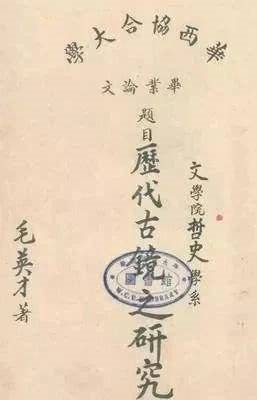 華西協合大學
畢業論文
文學院哲史學系
題目歷代古鏡之研究
毛英才著
圖書館